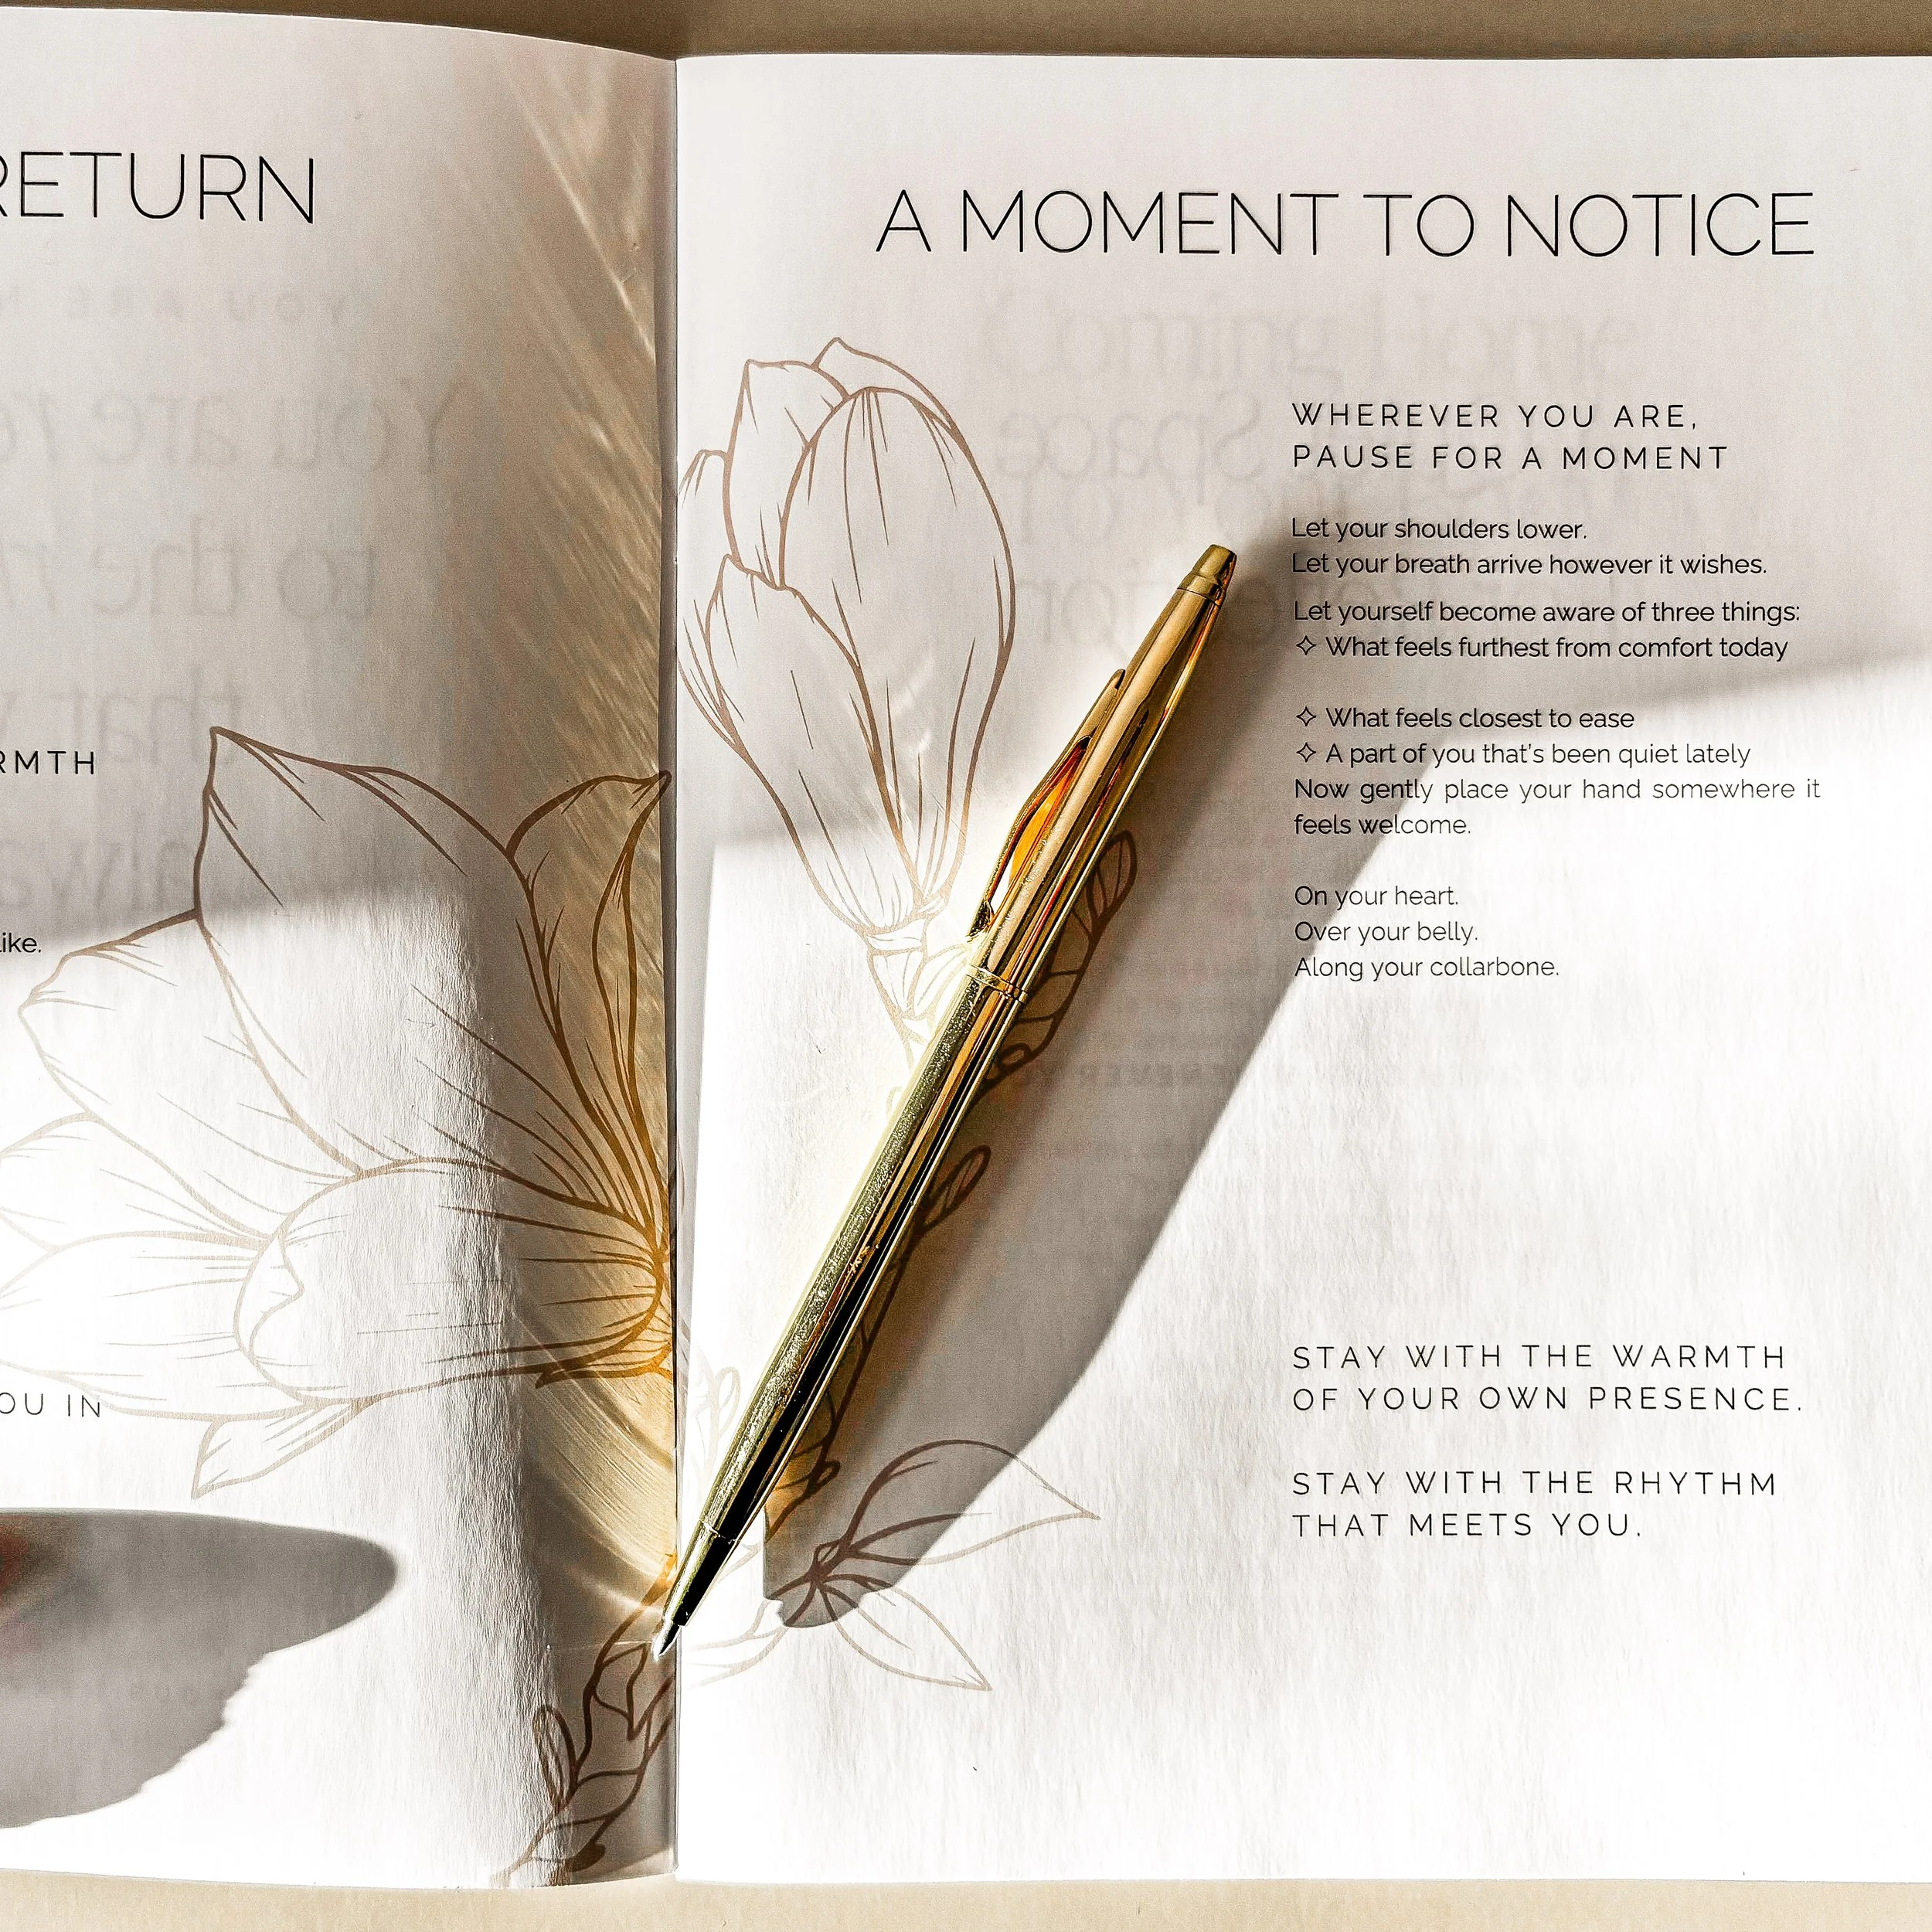 RETURN
RMTH
like.
OU IN
A MOMENT TO NOTICE
WHEREVER YOU ARE,
PAUSE FOR A MOMENT
Let your shoulders lower.
Let your breath arrive however it wishes.
Let yourself become aware of three things:
✧ What feels furthest from comfort today
✧ What feels closest to ease
✧ A part of you that's been quiet lately
Now gently place your hand somewhere it
feels welcome.
On your heart.
Over your belly.
Along your collarbone.
STAY WITH THE WARMTH
OF YOUR OWN PRESENCE.
STAY WITH THE RHYTHM
THAT MEETS YOU.